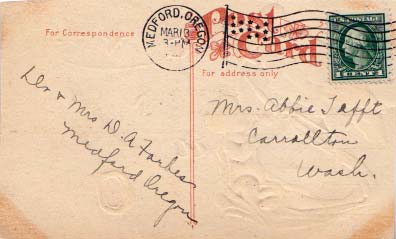 For Correspondence
MEDFORD, OREGON
MAR 13
3-PM
Post Card
For address only
U.S. POSTAGE
1 CENT 1
Mrs. Abbie Tafft
Carrollton
Wash.
Dr & Mrs D. A Forbes
Medford Oregon